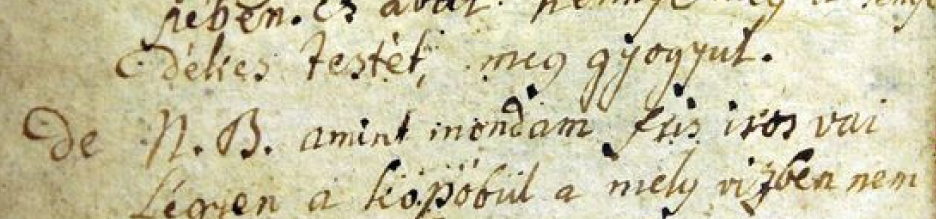 jeben. és avat.
délies testét, meg gyogyul.
De N. B. amint mondam fris iros vai
légyen a köpöbül a mely vizben nem